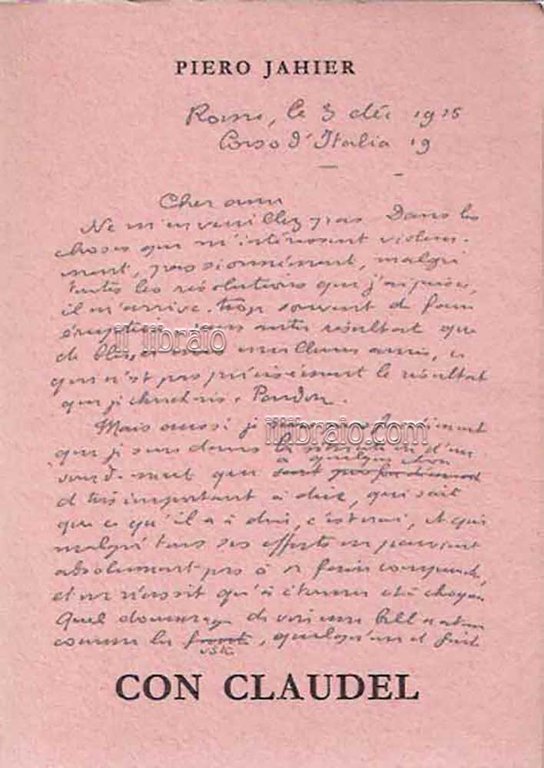 PIERO JAHIER
Rome, le 3 déc 1915
Corso d'Italia 19
Cher ami
Ne m'en veuillez pas. Dans les
choses qui m'intéressent violem-
ment, passionnément, malgré
toutes les résolutions que j'ai prises,
il m'arrive trop souvent de faire
éruption sans autre résultat que
de mes meilleurs amis, ce
qui n'est pas précisément le résultat
que je cherchais. Pardon.
il libraio
Mais aussi je
que je suis dans la situation d'un
illibraio.com
sourd-muet qui a quelque chose
de très important à dire, qui sait
que ce qu'il a à dire, c'est vrai, et qui
malgré tous ses efforts ne parvient
absolument pas à se faire comprendre,
et ne réussit qu'à étonner et à choquer
Quel dommage de voir une belle nation
comme la vôtre, quelqu'un et fait
CON CLAUDEL